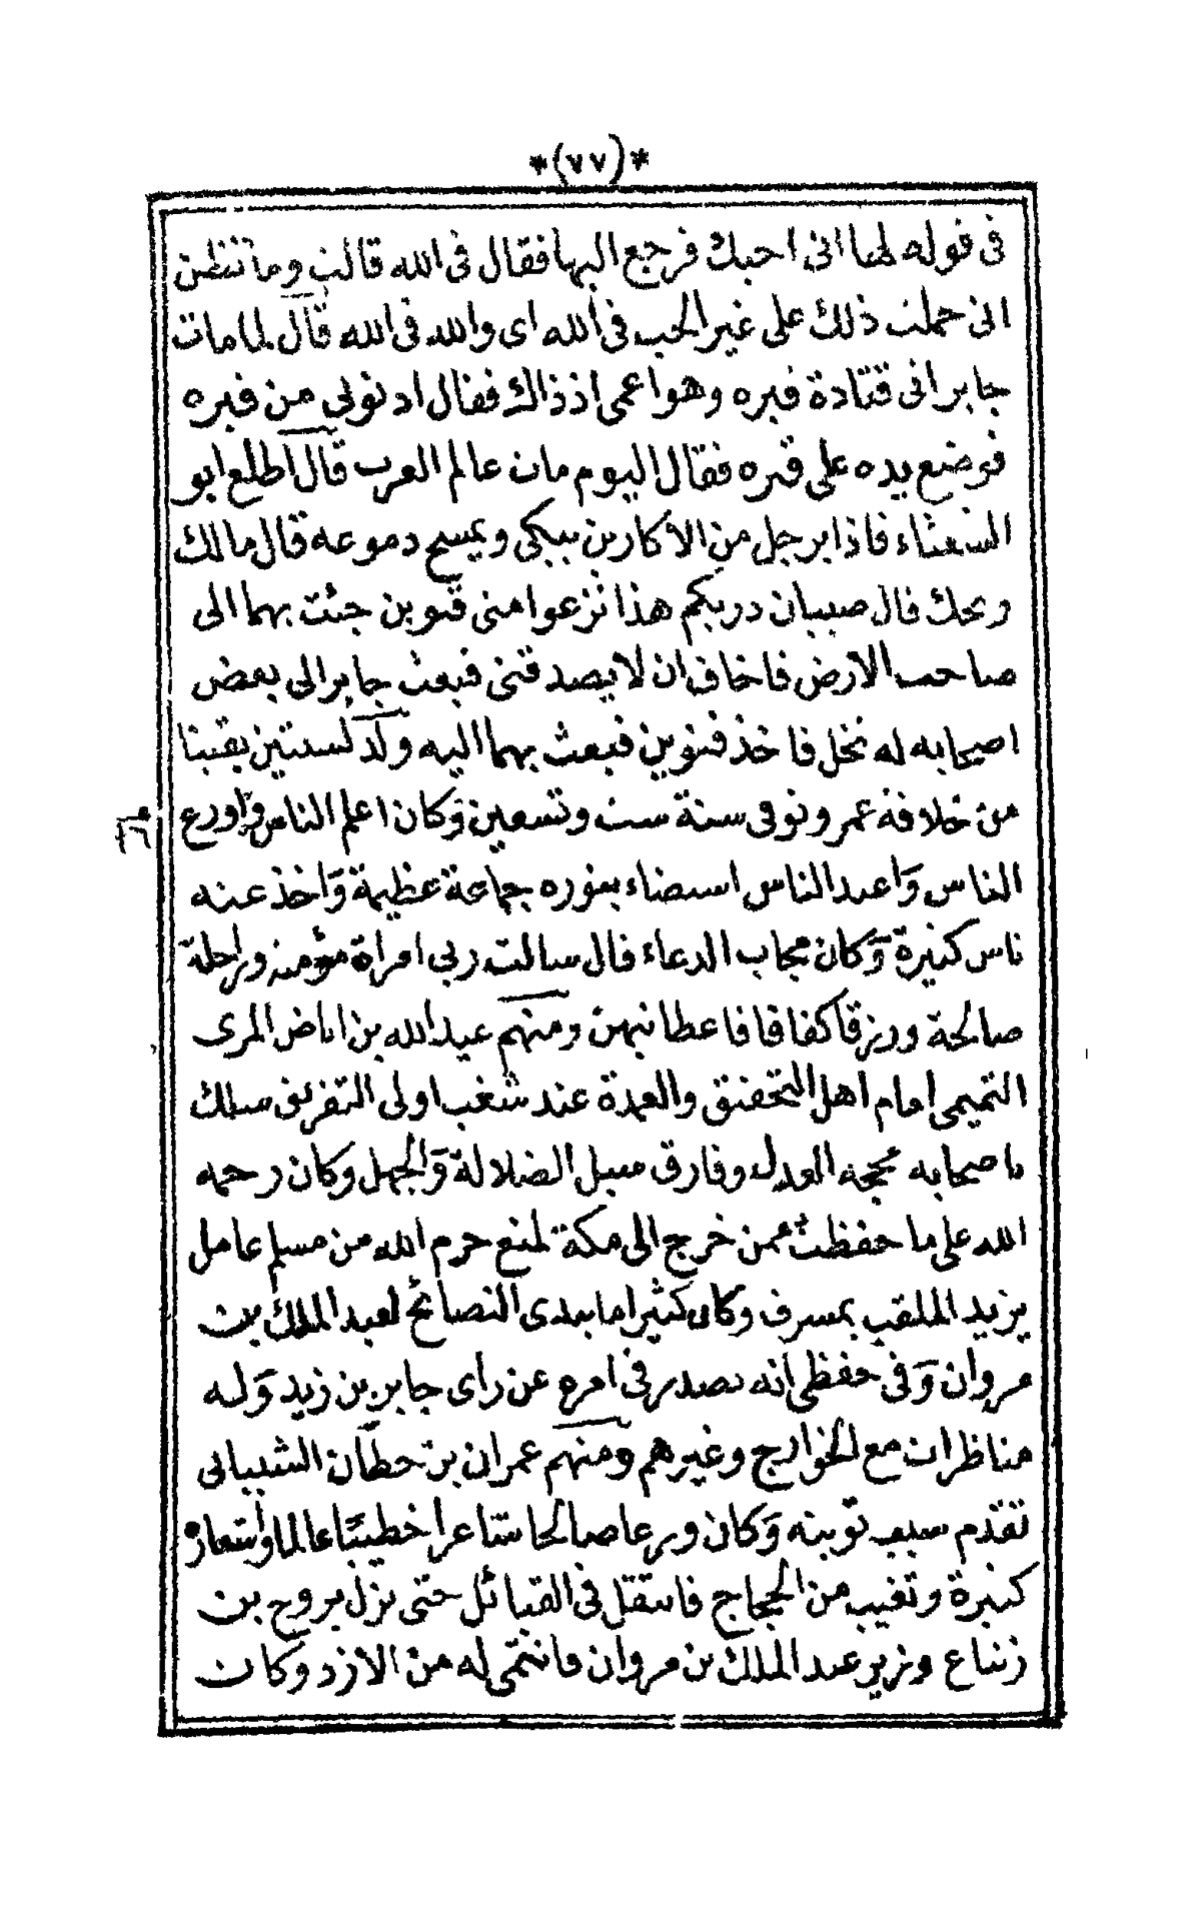 *(٧٧)*
فى قوله لها انى احبك فرجع اليها فقال فى الله قالت وما تنظن
انى حملت ذلك على غير الحب فى الله اى والله فى الله قال لما مات
جابر اتى قتادة قبره وهو اعمى اذ ذاك فقال ادنونى من قبره
فوضع يده على قبره فقال اليوم مات عالم العرب قال اطلع ابو
الشعثاء فاذا برجل من الاكارين يبكى ويمسح دموعه قال مالك
ويحك قال صبيان دربكم هذا نزعوا منى قنوين جئت بهما الى
صاحب الارض فاخاف ان لا يصدقنى فبعث جابر الى بعض
اصحابه له نخل فاخذ قنوين فبعث بهما اليه ولد لسنتين بقيتا
من خلافة عمر وتوفى سنة ست وتسعين وكان اعلم الناس واورع
الناس واعبد الناس استضاء بنوره جماعة عظيمة واخذ عنه
ناس كثيرة وكان مجاب الدعاء قال سالت ربى امراة مؤمنه وراحلة
صالحة ورزقا كفافا فاعطانيهن ومنهم عبد الله بن اباض المرى
التميمى امام اهل التحقيق والعمدة عند شغب اولى التفريق سلك
باصحابه محجة العدل وفارق سبل الضلالة والجهل وكان رحمه
الله على ما حفظت ممن خرج الى مكة لمنع حرم الله من مسلم عامل
يزيد الملقب بمسرف وكان كثيرا ما يبدى النصائح لعبد الملك بن
مروان وفى حفظى انه يصدر فى امره عن راى جابر بن زيد وله
مناظرات مع الخوارج وغيرهم ومنهم عمران بن حطان الشيبانى
تقدم سبب توبته وكان ورعا صالحا شاعرا خطيبا عالما واشعاره
كثيرة وتغيب من الحجاج فانتقل فى القبائل حتى نزل بروح بن
زنباع وزير عبد الملك بن مروان فانتمى له من الازد وكان